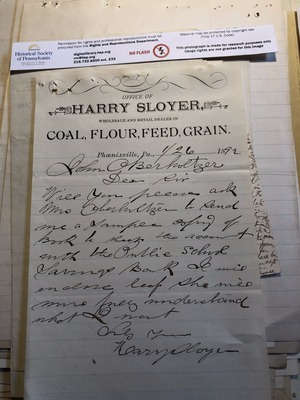 Historical Society
of Pennsylvania
Permission for rights and professional reproductions must be
procured from the Rights and Reproductions Department.
digitallibrary.hsp.org
rnr@hsp.org
215.732.6200 ext. 233
NO FLASH
Material may be protected by copyright law
(Title 17 U.S. Code)
This photograph is made for research purposes only
Usage rights are not granted for this image
OFFICE OF
HARRY SLOYER,
WHOLESALE AND RETAIL DEALER IN
COAL, FLOUR, FEED, GRAIN.
Phœnixville, Pa., 1/26 1892
John Oberholtzer
Dear Sir
Will you please ask
Mrs Oberholtzer to send
me a sample of
Book to keep the account
with the Public School
Savings Bank I will
enclose leaf She will
more fully understand
what I want
Harry Sloyer